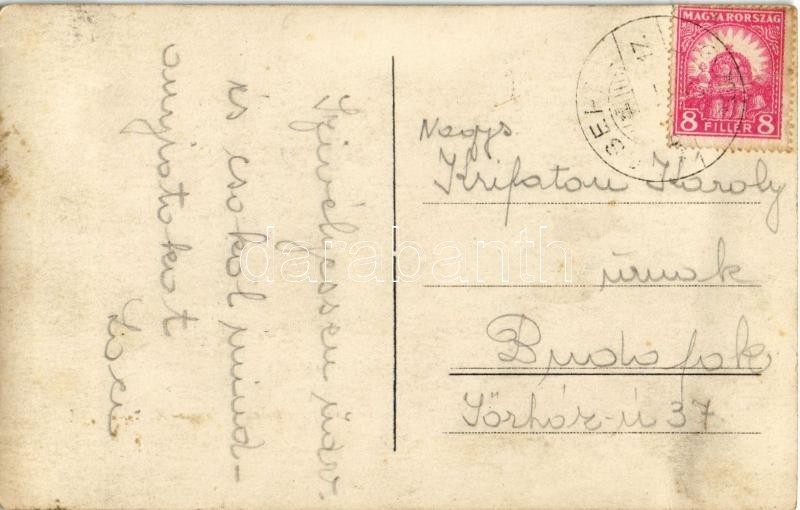 Szivélyessen üdv.
és csokol mind-
annyiatokat
MAGYARORSZÁG
8 FILLÉR 8
Nagys.
Krifaton Károly
úrnak
Budafok
Sörház-ú 37
darabanth